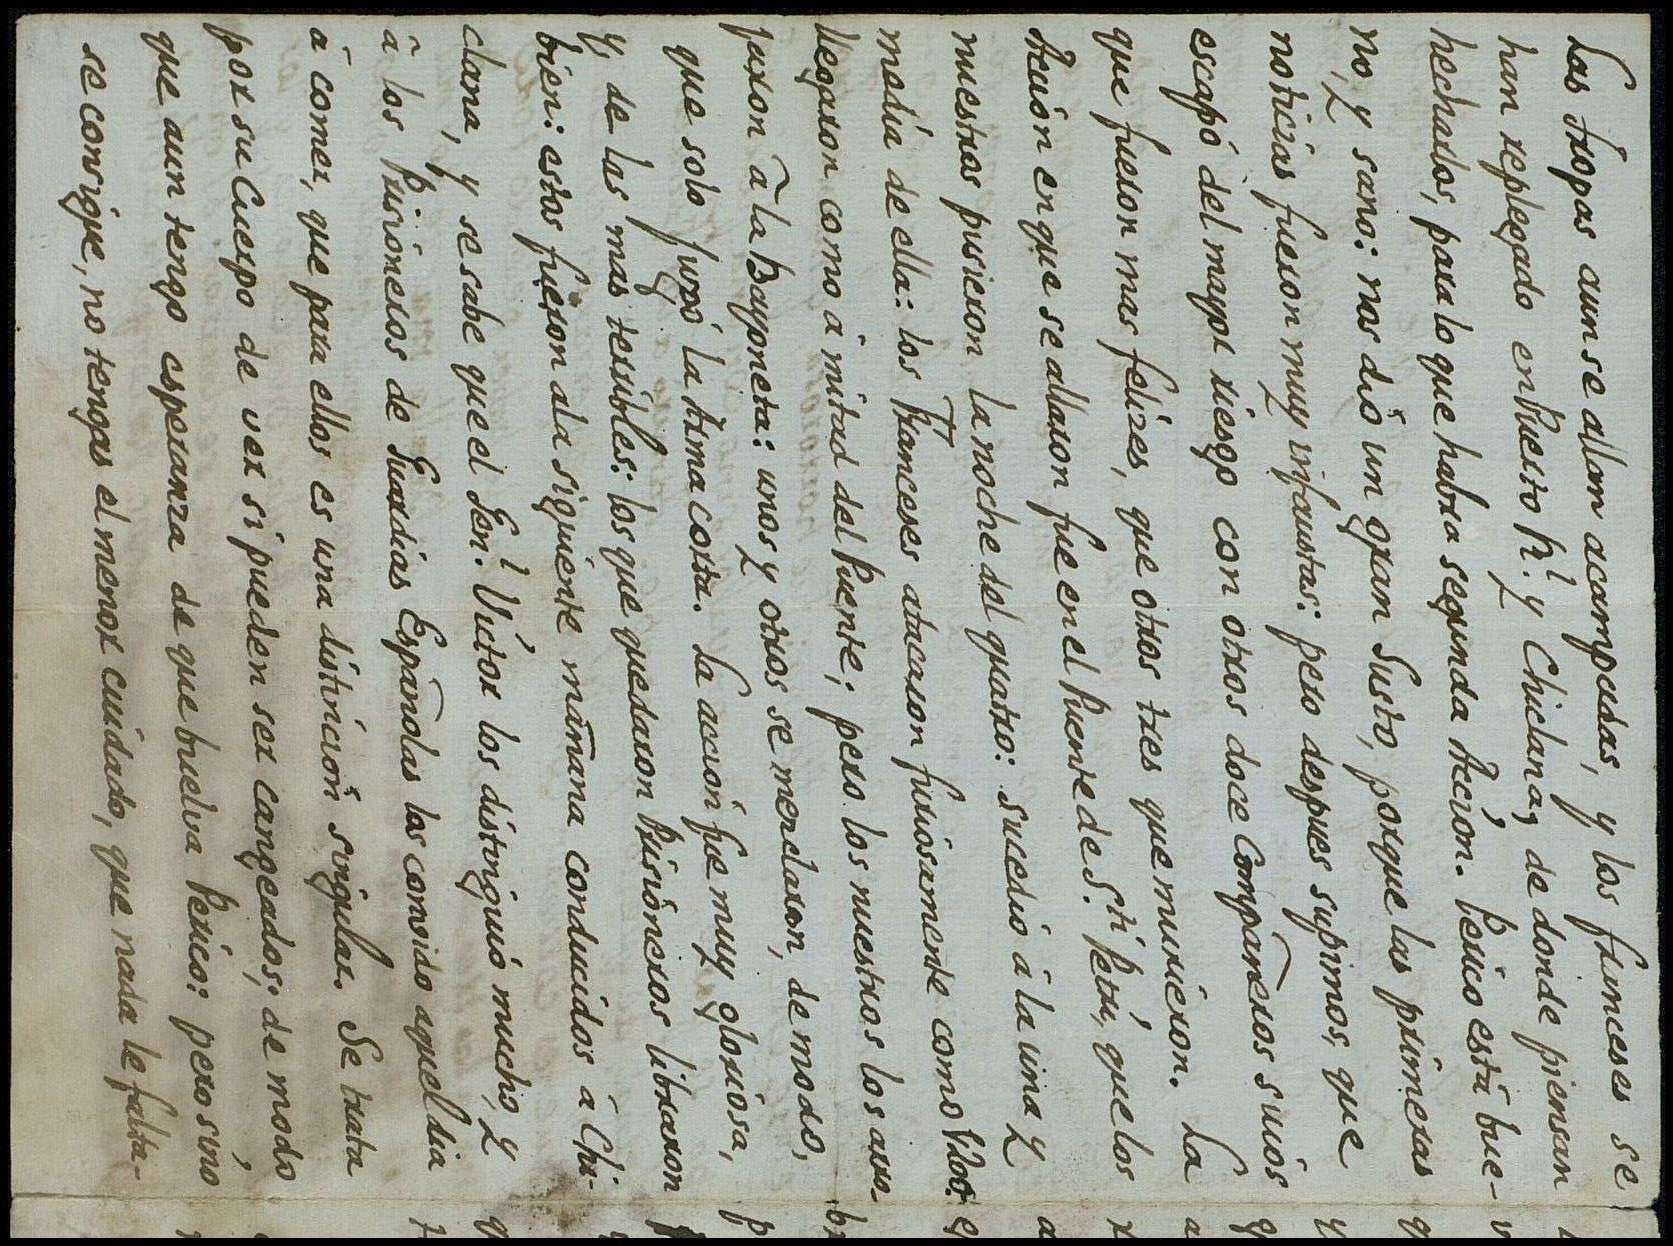 Las tropas aun se allan acampadas, y los franceses se
han replegado en Puerto Rl. y Chiclana, de donde piensan
hecharlos, para lo que habra segunda Accion. Perico está bue-
no, y sano: nos dió un gran Susto, porque las primeras
noticias fueron muy infaustas: pero despues supimos, que
escapó del mayor riesgo con otros doce Compañeros suios
que fueron mas felizes, que otros tres que murieron. La
Acción en que se allaron fue en el Puente de Sti. Petri, que los
nuestros pusieron la noche del quatro: sucedió á la una y
media de ella: los Franceses atacaron furiosamente como
llegaron como á mitad del Puente; pero los nuestros los arro-
jaron á la Bayoneta: unos y otros se mezclaron, de modo,
que solo jugó la Arma corta. La accion fue muy gloriosa,
y de las mas terribles: los que quedaron Prisioneros libraron
bien: estos fueron ala siguiente mañana conducidos á Chi-
clana, y se sabe que el Genl. Victor los distinguió mucho, y
á los Prisioneros de Guardias Españolas los convidó aquel dia
á comer, que para ellos es una distincion singular. Se trata
por su Cuerpo de ver si pueden ser cangeados; de modo
que aun tengo esperanza de que buelva Perico: pero sino
se consigue, no tengas el menor cuidado, que nada le falta-